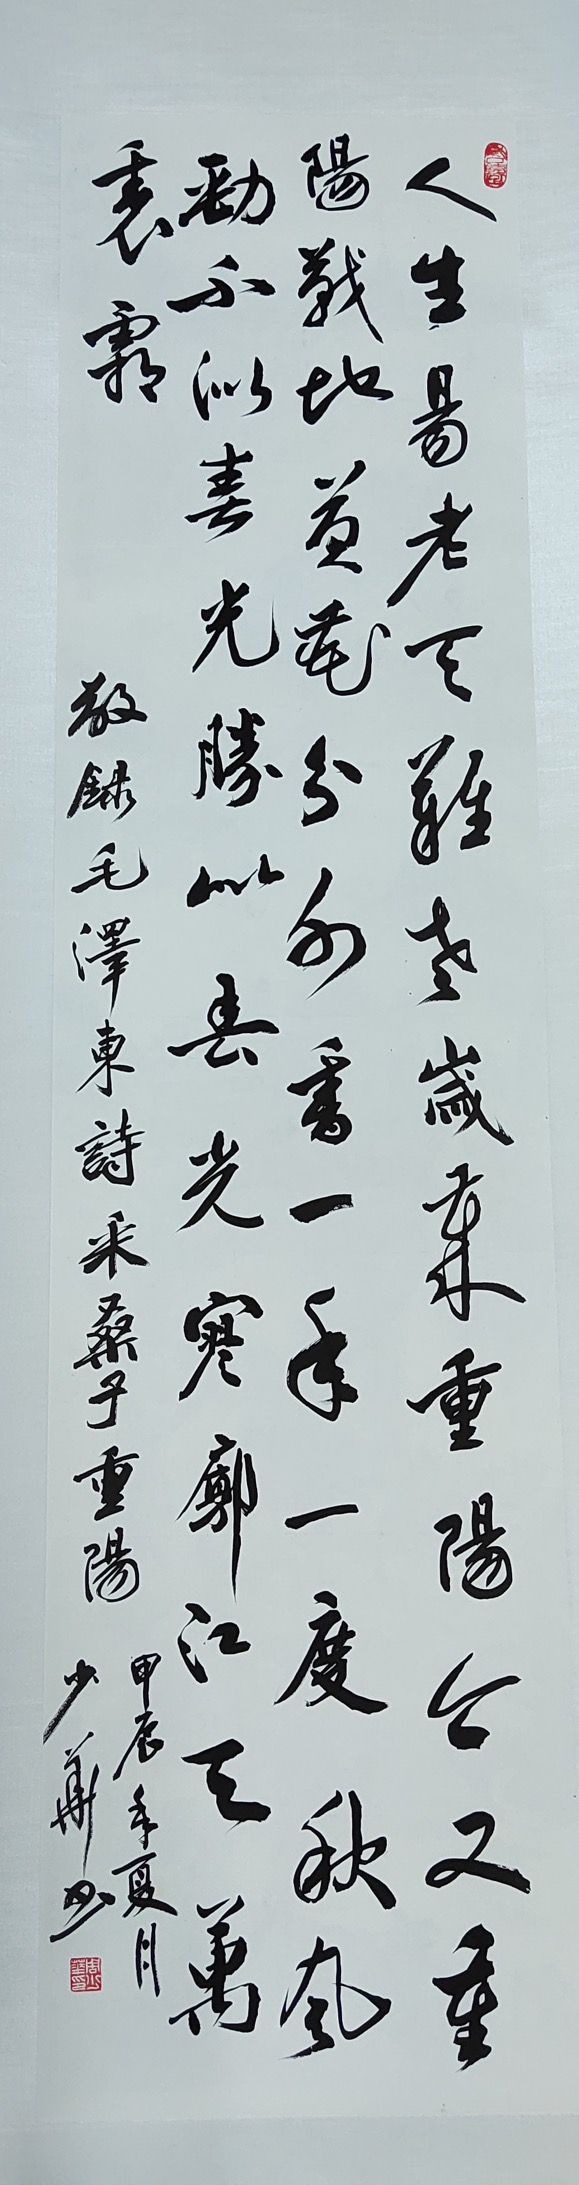 人生易老天難老歲歲重陽今又重
陽戰地黃花分外香一年一度秋風
勁不似春光勝似春光寥廓江天萬
里霜
敬錄毛澤東詩采桑子重陽
甲辰年夏月
少華书